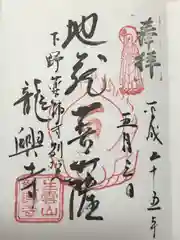 奉拝
平成二十五年
五月六日
地蔵菩薩
下野薬師寺別院
龍興寺